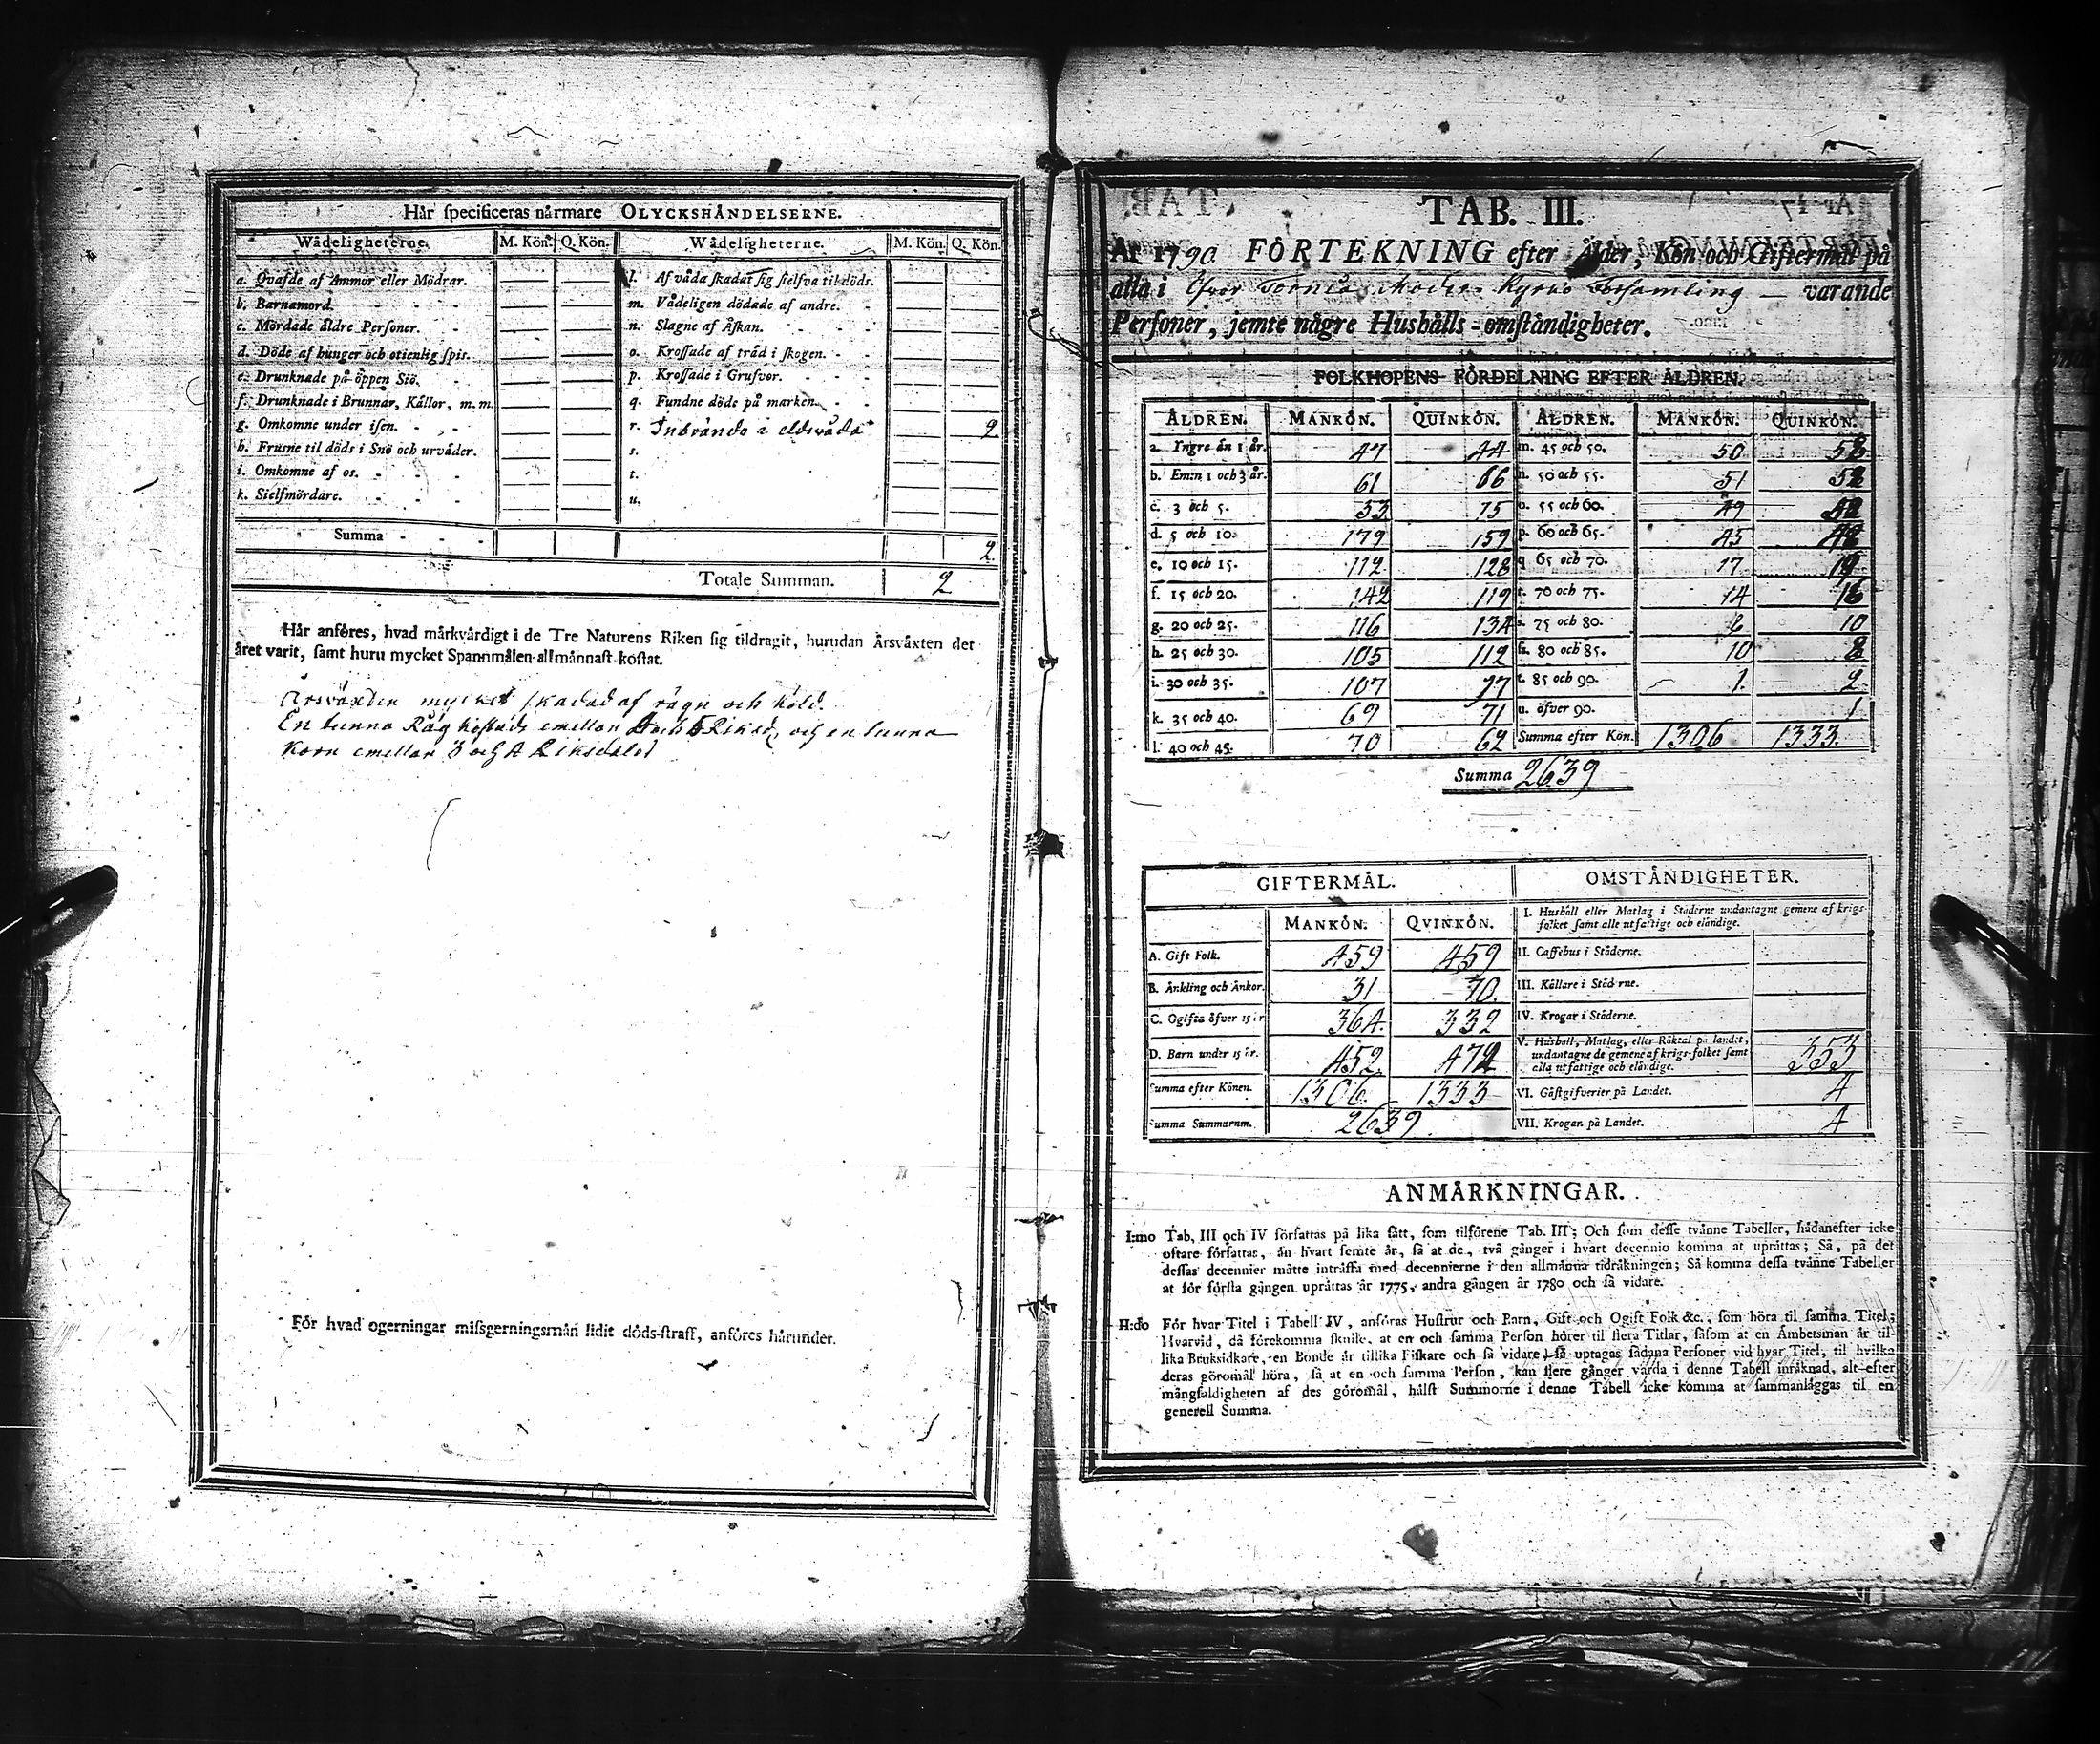 Hår specificeras nårmare OLYCKSHÅNDELSERNE.
Wådeligheterne. M. Kön. Q. Kön. Wådeligheterne. M. Kön. Q. Kön.
a. Qvafde af Ammor eller Mödrar. l. Af våda skadat sig sielfva til döds.
b. Barnamord. m. Vådeligen dödade af andre.
c. Mördade åldre Personer. n. Slagne af Åskan.
d. Döde af hunger och otienlig spis. o. Krossade af tråd i skogen.
e. Drunknade på öppen Siö. p. Krossade i Grufvor.
f. Drunknade i Brunnar, Kållor, m. m. q. Fundne döde på marken.
g. Omkomne under isen. r. Inbrände i eldsvåda 2
h. Frusne til döds i Snö och urvåder. s.
i. Omkomne af os. t.
k. Sielfmördare. u.
Summa 2
Totale Summan. 2
Hår anföres, hvad mårkvårdigt i de Tre Naturens Riken sig tildragit, hurudan Årsvåxten det
året varit, samt huru mycket Spannmålen allmånnast kostat.
Årsväxten mycket skadad af rägn och köld.
En tunna Råg kostade emellan och 5 Riksd, och en tunna
Korn emellan 3 och 4 Riksdaler
För hvad ogerningar missgerningsmån lidit döds-straff, anföres hårunder.
TAB. III.
År 1790 FÖRTEKNING efter Ålder, Kön och Giftermål på
alla i Öfver Torneå Moder Kyrko Församling varande
Personer, jemte någre Hushålls-omståndigheter.
FOLKHOPENS FÖRDELNING EFTER ÅLDREN.
ÅLDREN. MANKÖN. QUINKÖN. ÅLDREN. MANKÖN. QUINKÖN.
a. Yngre än 1 år. 47 44 m. 45 och 50. 50
b. Em:n 1 och 3 år. 61 66 n. 50 och 55. 51
c. 3 och 5. 53 75 o. 55 och 60. 49
d. 5 och 10. 179 159 p. 60 och 65. 45
e. 10 och 15. 112 128 q. 65 och 70. 17 19
f. 15 och 20. 142 119 r. 70 och 75. 14 16
g. 20 och 25. 116 134 s. 75 och 80. 10
h. 25 och 30. 105 112 80 och 85. 10 8
i. 30 och 35. 107 77 t. 85 och 90. 1. 2
k. 35 och 40. 69 71 u. öfver 90. 1
l. 40 och 45. 70 62 Summa efter Kön. 1306 1333.
Summa 2639
GIFTERMÅL. OMSTÅNDIGHETER.
MANKÖN. QVINKÖN. I. Hushåll eller Matlag i Ståderne undantagne gemene af krigs-
folket samt alle utfattige och elåndige.
A. Gift Folk. 459 459 II. Caffehus i Ståderne.
B. Ånkling och Ånkor. 31 70. III. Kållare i Ståderne.
C. Ogifta öfver 15 år 364. 332 IV. Krogar i Ståderne.
D. Barn under 15 år. 452. 472 V. Hushåll, Matlag, eller Röktal på landet,
undantagne de gemene af krigs-folket samt
alla utfattige och elåndige. 353
Summa efter Könen. 1306 1333 VI. Gåstgifverier på Landet. 4
Summa Summarum. 2639 VII. Krogar på Landet. 4
ANMÅRKNINGAR.
I:mo Tab, III och IV författas på lika sått, som tilförene Tab. III; Och som desse tvånne Tabeller, hådanefter icke
oftare författas, ån hvart femte år, så at de, två gånger i hvart decennio komma at upråttas; Så, på det
dessas decennier måtte intråffa med decennierne i den allmånna tidråkningen; Så komma dessa tvånne Tabeller
at för första gången upråttas år 1775, andra gången år 1780 och så vidare.
II:do För hvar Titel i Tabell IV, anföras Hustrur och Barn, Gift och Ogift Folk &c., som höra til samma Titel;
Hvarvid, då förekomma skulle, at en och samma Person hörer til flera Titlar, såsom at en Åmbetsman år til-
lika Bruksidkare, en Bonde år tillika Fiskare och så vidare, så uptagas sådana Personer vid hvar Titel, til hvilka
deras göromål höra, så at en och samma Person, kan flere gånger vårda i denne Tabell inråknad, alt efter
mångfaldigheten af des göromål, hålst Summorne i denne Tabell icke komma at sammanlåggas til en
generell Summa.